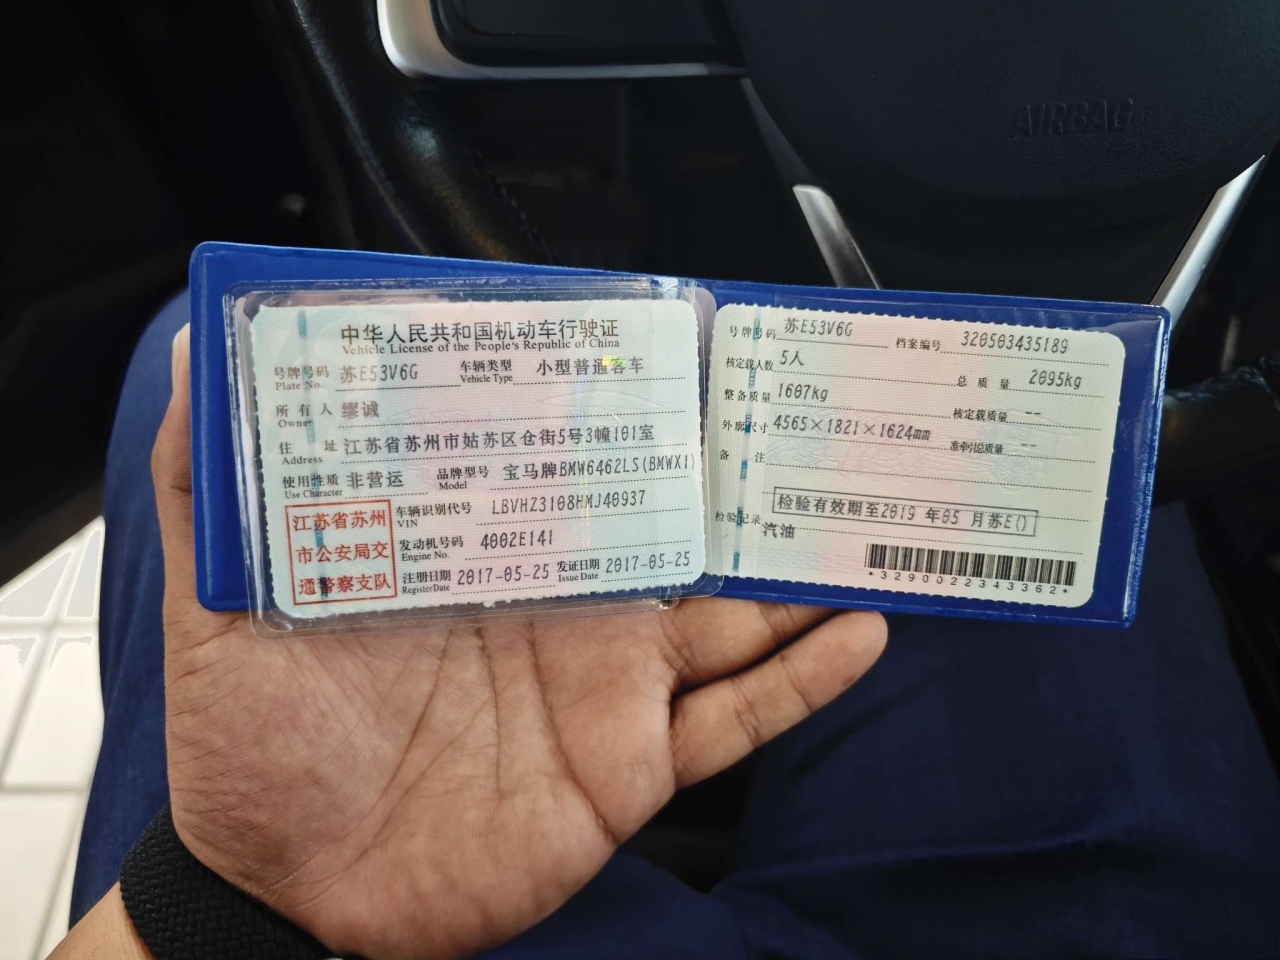 AIRBAG
中华人民共和国机动车行驶证
Vehicle License of the People's Republic of China
号牌号码 苏E53V6G 车辆类型 小型普通客车
Plate No. Vehicle Type
所有人 缪诚
Owner
住址 江苏省苏州市姑苏区仓街5号3幢101室
Address
使用性质 非营运 品牌型号 宝马牌BMW6462LS(BMWX1)
Use Character Model
江苏省苏州
市公安局交
通警察支队
车辆识别代号 LBVHZ3108HMJ40937
VIN
发动机号码 4002E141
Engine No.
注册日期 2017-05-25 发证日期 2017-05-25
Register Date Issue Date
号牌号码 苏E53V6G 档案编号 320503435189
核定载人数 5人 总质量 2095kg
整备质量 1607kg 核定载质量 --
外廓尺寸 4565×1821×1624mm 准牵引总质量 --
备注
检验有效期至2019年05月苏E()
检验记录
汽油
*3290022343362*